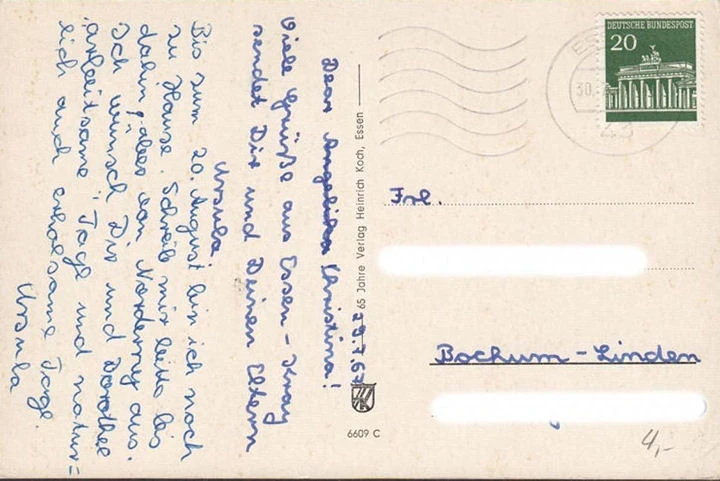 29.7.67
Dear Angelika Christina!
Viele Grüße aus Essen-Kray
sendet Dir und Deinen Eltern
Ursula
Bis zum 20. August bin ich noch
zu Hause. Schreib mir bitte bis
dahin, alles von Norderney aus.
Ich wünsch Dir und Dorothee
arbeitsame Tage und natür=
lich auch erholsame Tage.
Ursula
65 Jahre Verlag Heinrich Koch, Essen
6609 C
DEUTSCHE BUNDESPOST
20
30.
43
Frl.
Bochum-Linden
4,-